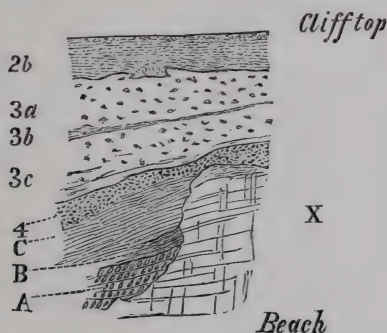 Cliff top
2b
3a
3b
3c
4
C
X
B
A
Beach